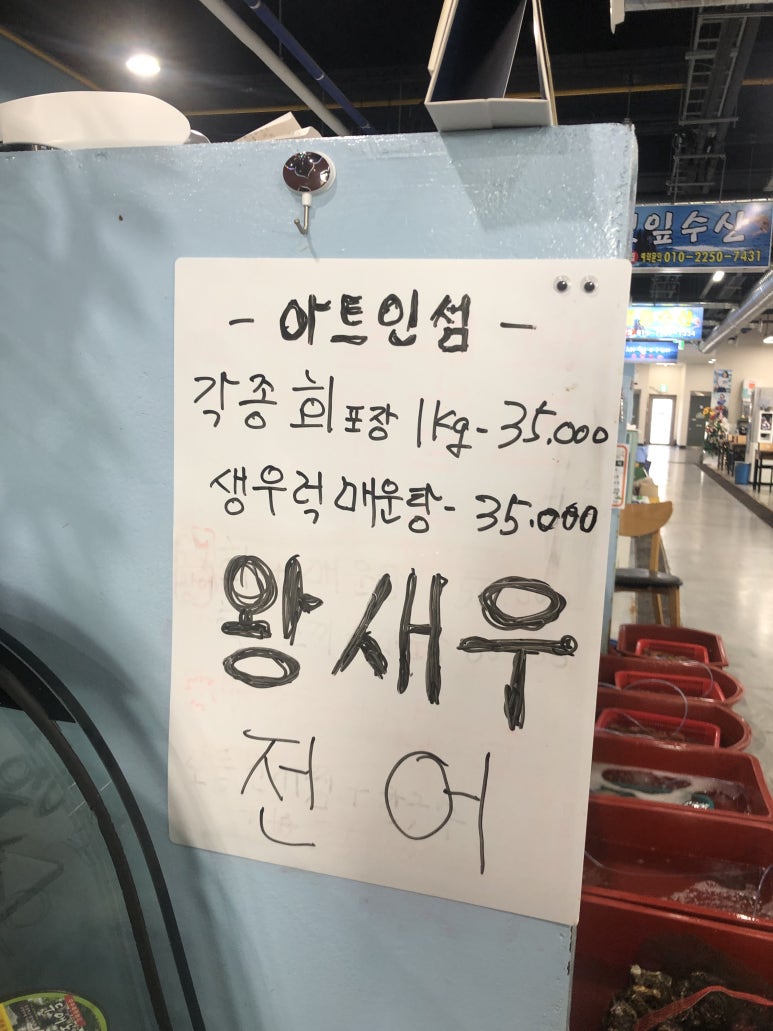 - 아트인섬 -
각종 회 포장 1Kg - 35.000
생우럭 매운탕 - 35.000
왕새우
전어
잎수산
예약문의 010-2250-7431